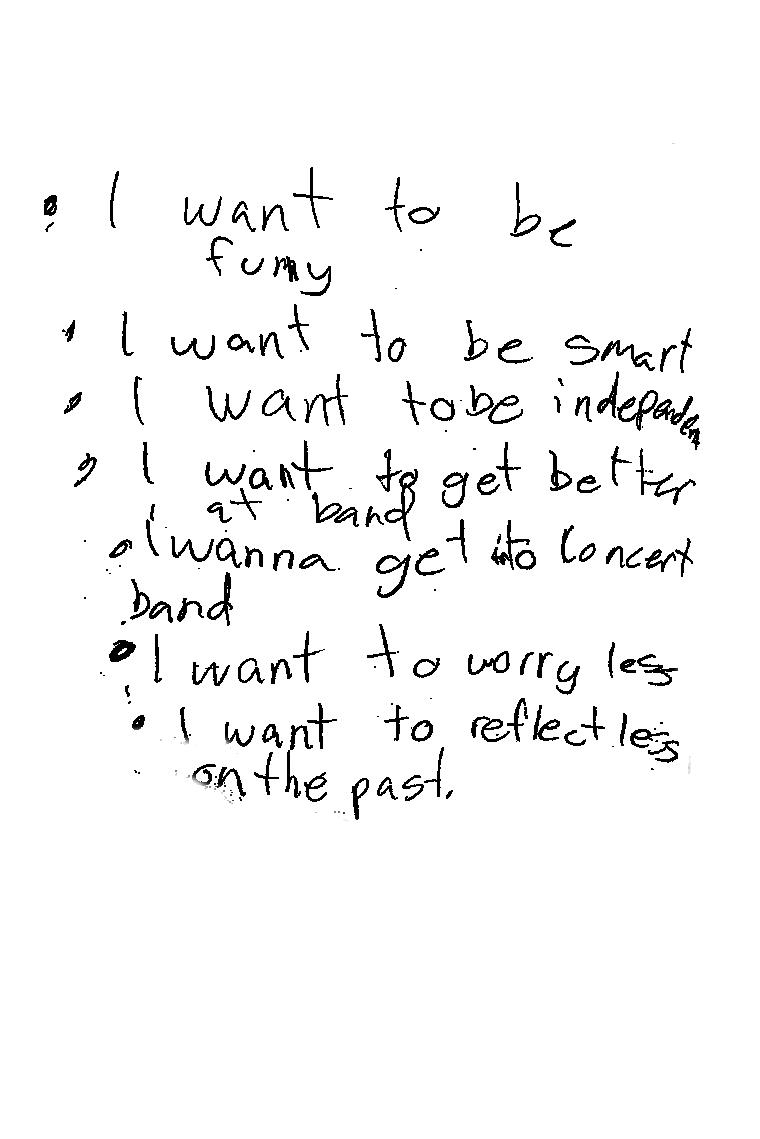 • I want to be
funny
• I want to be smart
• I want to be independent
• I want to get better
at band
• I wanna get into Concert
band
• I want to worry less
• I want to reflect less
on the past.